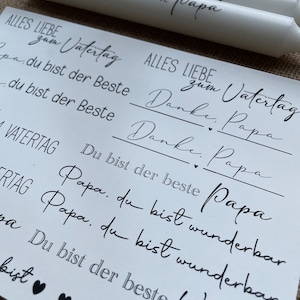 Papa
ALLES LIEBE
zum Vatertag
ALLES LIEBE
zum Vatertag
Papa, du bist der Beste
du bist der Beste
Danke, Papa
Danke, Papa
VATERTAG
Du bist der beste Papa
Papa, du bist wunderbar
Papa, du bist wunderbar
Du bist der beste
bist